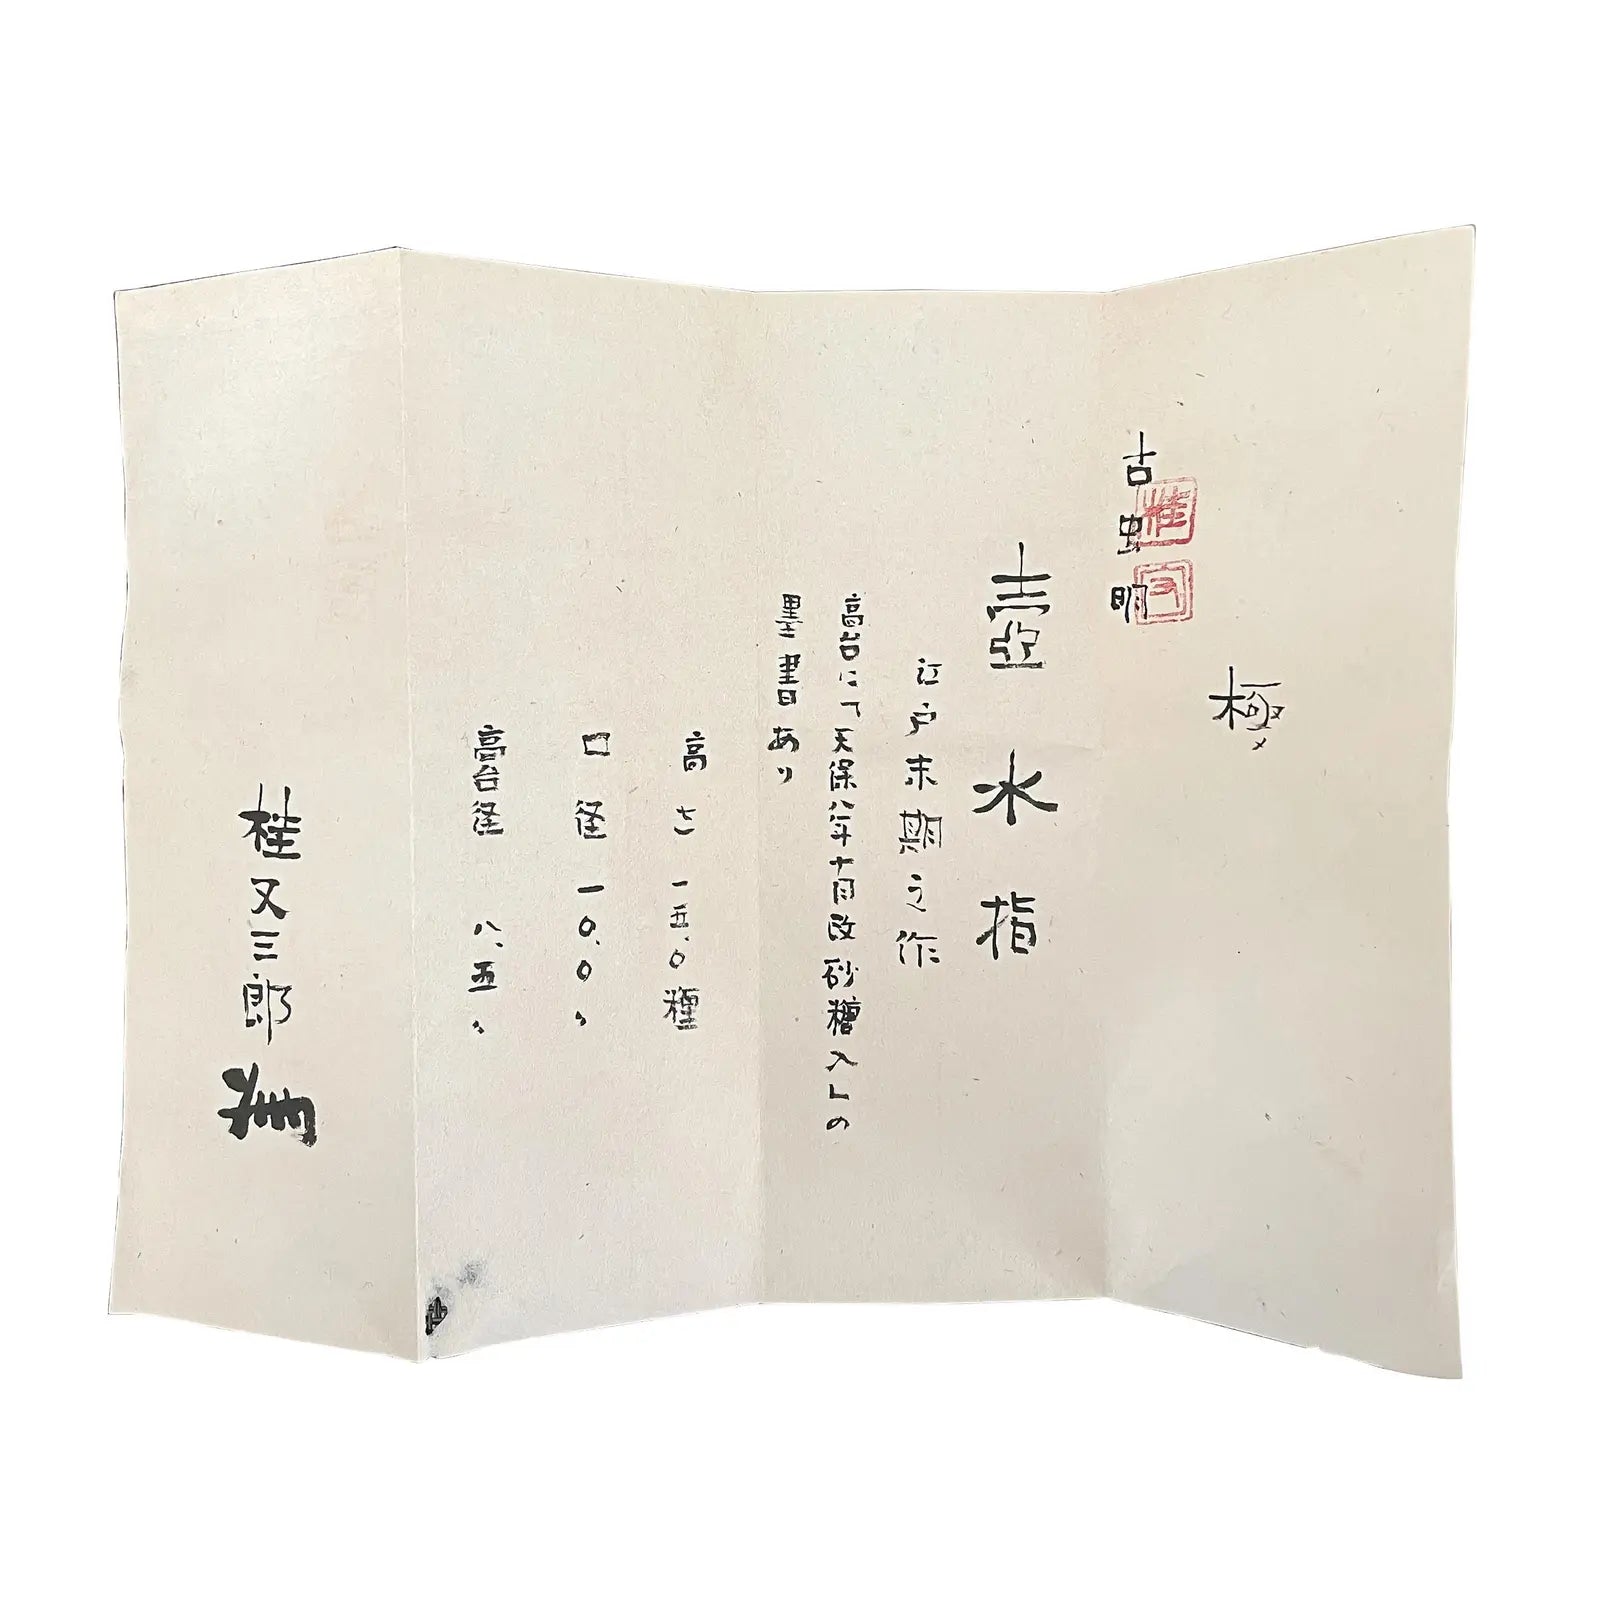 極メ
古虫明
桂
又
壺水指
江戸末期之作
高台に「天保八年十月改砂糖入」の
墨書あり
高さ 一五、〇糎
口径 一〇、〇〃
高台径 八、五〃
桂又三郎